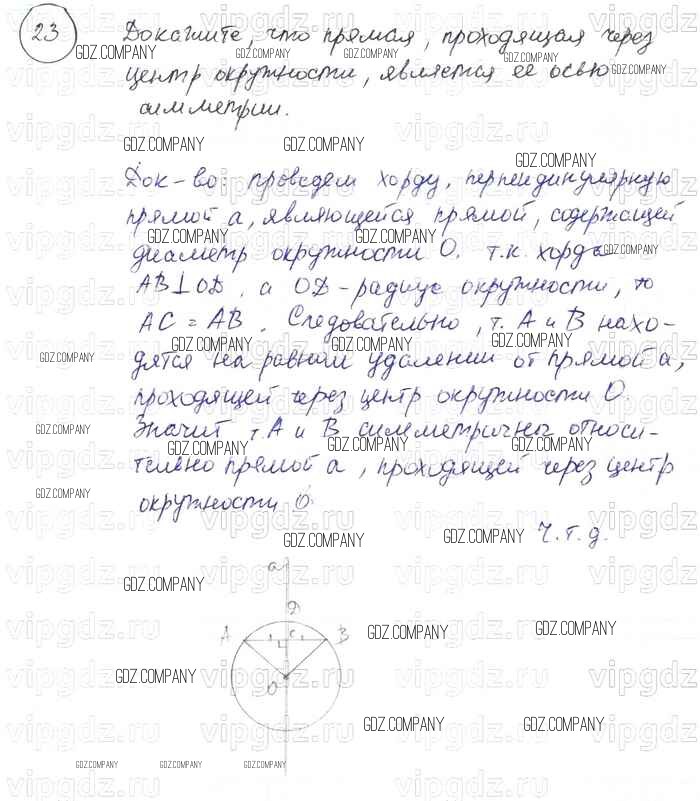 23 Докажите, что прямая, проходящая через
центр окружности, является ее осью
симметрии.
Док-во: проведем хорду, перпендикулярную
прямой a, являющейся прямой, содержащей
диаметр окружности O. т.к. хорда
AB⊥OD, а OD - радиус окружности, то
AC = AB. Следовательно, т. A и B нахо-
дятся на равном удалении от прямой a,
проходящей через центр окружности O.
Значит т. A и B симметричны относи-
тельно прямой a, проходящей через центр
окружности O.
Ч.т.д.
a
D
A C B
O
GDZ.COMPANY
vipgdz.ru